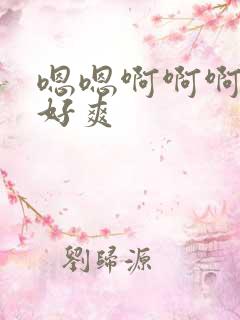 嗯嗯啊啊啊
好爽
劉歸源